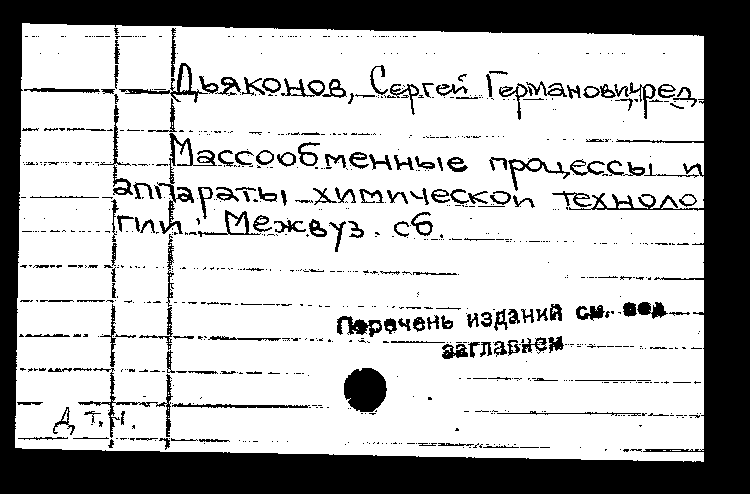 Дьяконов, Сергей Германович, ред
Массообменные процессы и
аппараты химической техноло-
гии: Межвуз. сб.
Перечень изданий см. под
заглавием
Д т.ч.